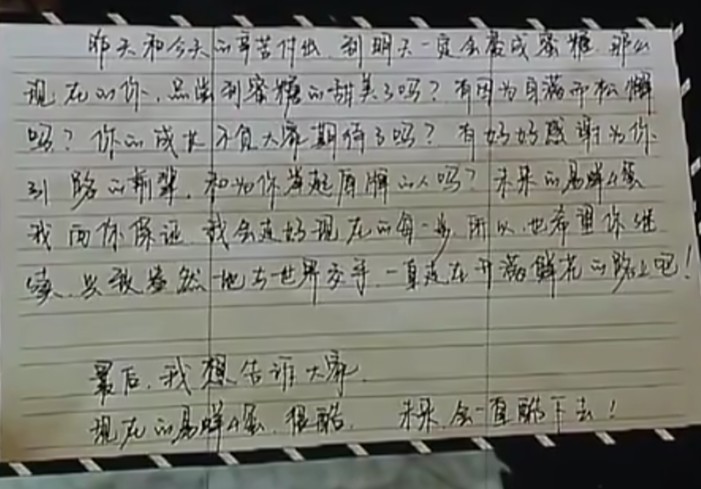 昨天和今天的辛苦付出，到明天一定会变成蜜糖，那么
现在的你，品尝到蜜糖的甜美了吗？有因为自满而松懈
吗？你的成长不负大家期待了吗？有好好感谢为你
引路的前辈，和为你撑起屏障的人吗？未来的易烊千玺
我向你保证，我会走好现在的每一步，所以，也希望你继
续，兴致盎然地与世界交手，一直走在开满鲜花的路上吧！
最后，我想告诉大家，
现在的易烊千玺，很酷，未来，会一直酷下去！